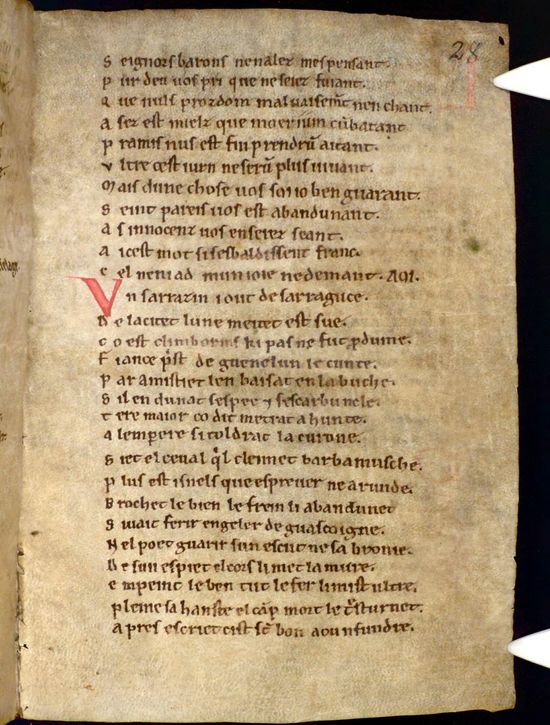 28
Seignors barons nen alez mespensant.
Pur deu uos pri que ne seiez fuiant.
Que nuls prozdom maluaisem̄t nen chant.
Asez est mielz que moerium cūbatant
Pramis nus est fin prendrū aitant.
Vltre cest iurn ne serū plus uiuant.
Mais dune chose uos soi io ben guarant.
Seint pareis uos est abandunant.
As innocenz uos en serez seant.
A icest mot si sesbaldissent franc.
Cel nen i ad munioie ne demant. AOI.
Vn sarrazin i out de sarraguce.
De la citet lune meitet est sue.
Co est climborins ki pas ne fut ꝓdume.
Fiance pͥst de guenelun le cunte.
Par amistiet len baisat en la buche.
Sil en dunat sespee ⁊ sescarbuncle.
Tere maior co dit metrat a hunte.
A lempere si toldrat la curone.
Siet el ceual qͥl cleimet barbamusche.
Plus est isnels que espreuer ne arunde.
Brochet le bien le frein li abandunet
Si uait ferir engeler de guascoigne.
Nel poet guarir sun escut ne sa bronie.
De sun espiet el cors li met la mure.
Empeint le ben tut le fer li mist ultre.
Pleine sa hanste el cāp mort le tͬsturnet.
Apres escriet cist st̄ bon a cunfundre.